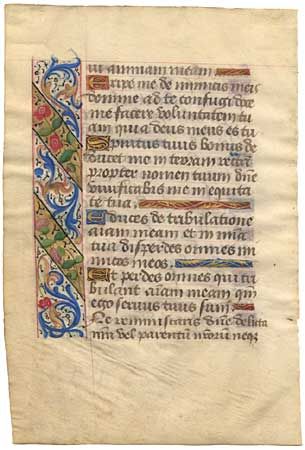 ui animam meam
Eripe me de inimicis meis
domine ad te confugi doce
me facere voluntatem tu
am quia deus meus es tu
Spiritus tuus bonus de
ducet me in terram rectā
propter nomen tuum dn̄e
vivificabis me in equita
te tua
Educes de tribulatione
aīam meam et in mīa
tua disperdes omnes ini
micos meos
Et perdes omnes qui tri
bulant aīam meam qm̄
ego servus tuus sum
Ne reminiscaris dn̄e delicta
nr̄a vel parentum nr̄orum neq̄